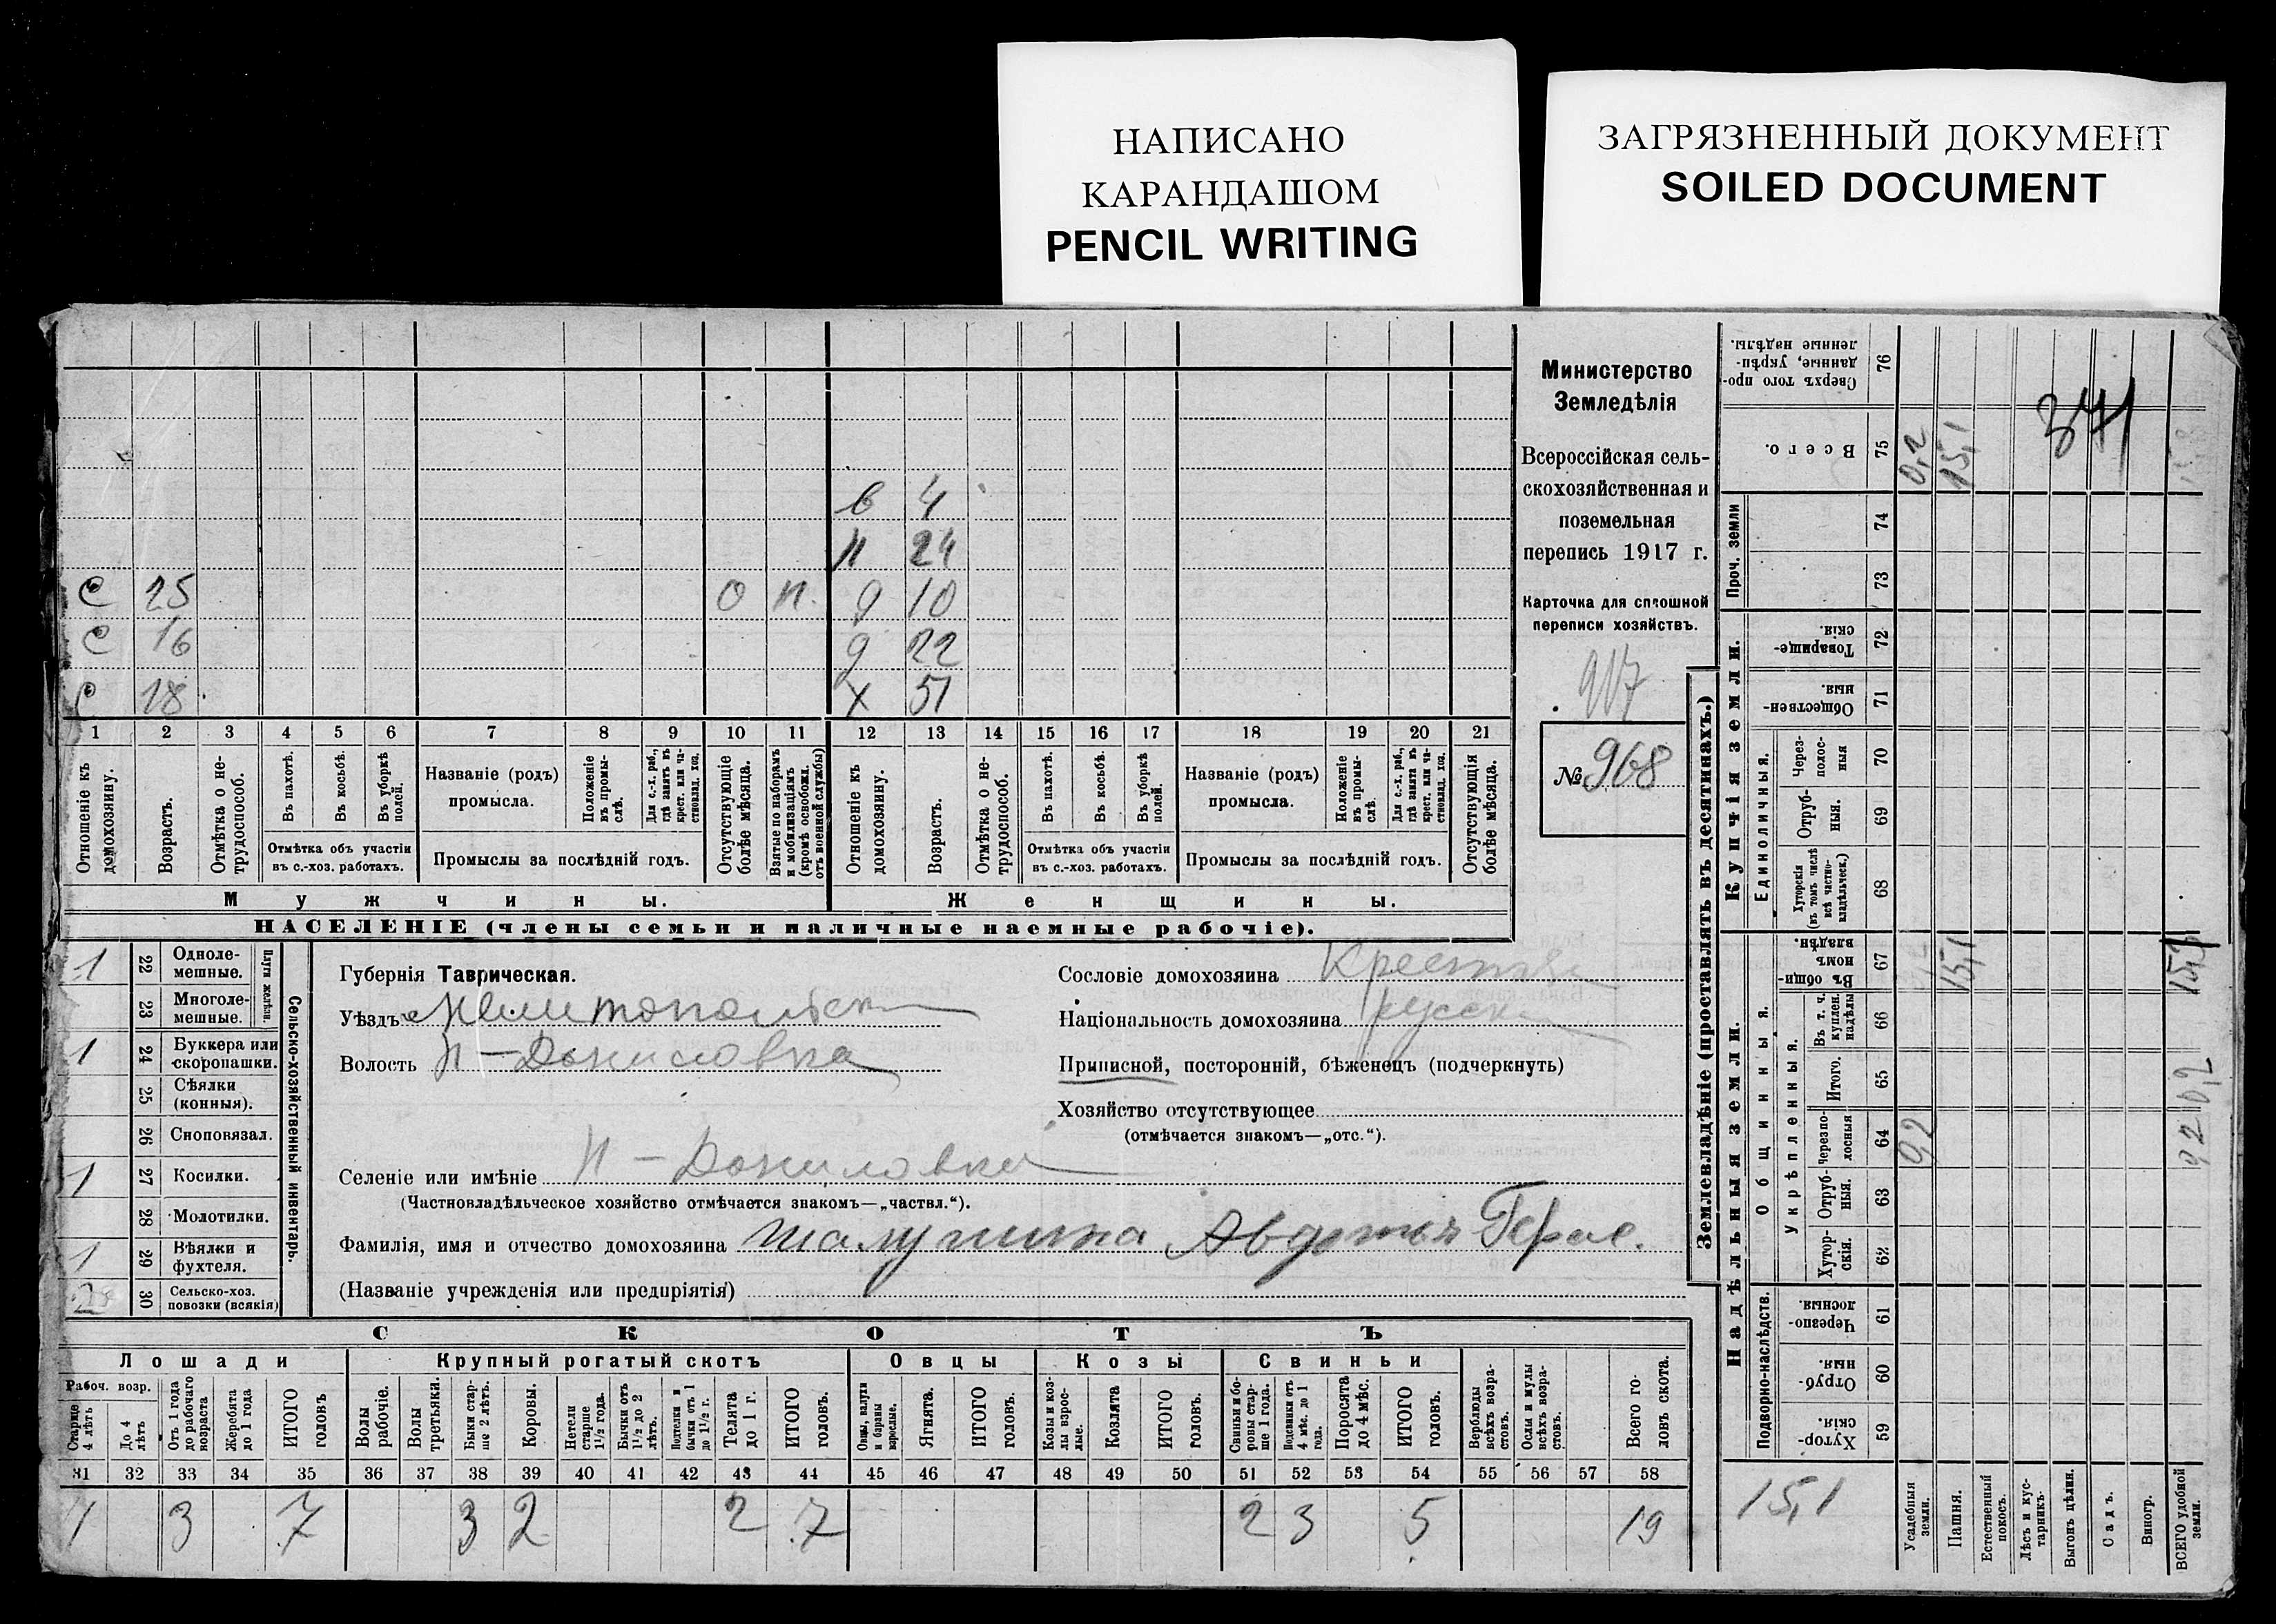 НАПИСАНО
КАРАНДАШОМ
PENCIL WRITING
ЗАГРЯЗНЕННЫЙ ДОКУМЕНТ
SOILED DOCUMENT
в 4
н 24
С 25 О п. д 10
С 16 д 22
С 18 х 51
1 2 3 4 5 6 7 8 9 10 11 12 13 14 15 16 17 18 19 20 21
Отношеніе къ домохозяину.
Возрастъ.
Отмѣтка о нетрудоспособ.
Въ пахотѣ.
Въ косьбѣ.
Въ уборкѣ полей.
Отмѣтка объ участіи
въ с.-хоз. работахъ.
Названіе (родъ)
промысла.
Положеніе въ промыслѣ.
Для с.-х. раб., гдѣ занятъ въ крест. или частновлад. хоз.
Промыслы за послѣдній годъ.
Отсутствующіе болѣе мѣсяца.
Взятые по наборамъ и мобилизаціямъ (кромѣ освобожд. отъ военной службы)
Отношеніе къ домохозяину.
Возрастъ.
Отмѣтка о нетрудоспособ.
Въ пахотѣ.
Въ косьбѣ.
Въ уборкѣ полей.
Отмѣтка объ участіи
въ с.-хоз. работахъ.
Названіе (родъ)
промысла.
Положеніе въ промыслѣ.
Для с.-х. раб., гдѣ занята въ крест. или частновлад. хоз.
Промыслы за послѣдній годъ.
Отсутствующія болѣе мѣсяца.
Мужчины. Женщины.
НАСЕЛЕНІЕ (члены семьи и наличные наемные рабочіе).
Министерство
Земледѣлія
Всероссійская сель-
скохозяйственная и
поземельная
перепись 1917 г.
Карточка для сплошной
переписи хозяйствъ.
917
№ 968
Сельско-хозяйственный инвентарь.
Плуги желѣзн.
1 22 Одноле-
мешные.
23 Многоле-
мешные.
1 24 Буккера или
скоропашки.
25 Сѣялки
(конныя).
26 Сноповязал.
1 27 Косилки.
28 Молотилки.
1 29 Вѣялки и
фухтеля.
2 30 Сельско-хоз.
повозки (всякія)
Губернія Таврическая.
Уѣздъ Мелитопольск
Волость Н-Даниловка
Селеніе или имѣніе Н-Даниловка
(Частновладѣльческое хозяйство отмѣчается знакомъ—„частвл.“).
Фамилія, имя и отчество домохозяина Шалунина Авдотья Герас.
(Названіе учрежденія или предпріятія)
Сословіе домохозяина
Національность домохозяина русск
Приписной, посторонній, бѣженецъ (подчеркнуть)
Хозяйство отсутствующее
(отмѣчается знакомъ—„отс.“).
СКОТЪ
Лошади Крупный рогатый скотъ Овцы Козы Свиньи
Рабоч. возр.
Старше 4 лѣтъ
До 4 лѣтъ
Отъ 1 года до рабочаго возраста
Жеребята до 1 года
ИТОГО головъ
Волы рабочіе.
Волы третьяки.
Быки старше 2 лѣтъ.
Коровы.
Нетели старше 1½ года.
Бычки отъ 1½ до 2 лѣтъ.
Подтелки и бычки отъ 1 до 1½ г.
Телята до 1 г.
ИТОГО головъ.
Овцы, валухи и бараны взрослые.
Ягнята.
ИТОГО головъ.
Козы и козлы взрослые.
Козлята
ИТОГО головъ.
Свиньи и боровы старше 1 года.
Подсвинки отъ 4 мѣс. до 1 года.
Поросята до 4 мѣс.
ИТОГО головъ.
Верблюды всѣхъ возрастовъ.
Ослы и мулы всѣхъ возрастовъ.
Всего головъ скота.
31 32 33 34 35 36 37 38 39 40 41 42 43 44 45 46 47 48 49 50 51 52 53 54 55 56 57 58
3 7 3 2 2 7 2 3 5 19
Землевладѣніе (проставлять въ десятинахъ.)
Надѣльныя земли. Купчія земли.
Подворно-наслѣдств. Общинныя. Укрѣпленныя. Единоличныя. Проч. земли
59 Хуторскія.
60 Отрубныя.
61 Черезполосныя.
62 Хуторскія.
63 Отрубныя.
64 Черезполосныя
65 Итого.
66 Въ т. ч. куплен. надѣлы
67 Въ общинномъ владѣн.
68 Хуторскія (въ томъ числѣ всѣ частновладѣльческ.)
69 Отрубныя.
70 Черезполосныя
71 Общественныя.
72 Товарищескія.
73
74
75 Всего.
76 Сверхъ того проданные, укрѣпленные надѣлы.
341
0,2
15,1
15,1
15,3
0,2
15,1
Усадебныя земли.
Пашня.
Естественный покосъ.
Лѣсъ и кустарникъ.
Выгонъ цѣлин.
Садъ.
Виногр.
ВСЕГО удобной земли.